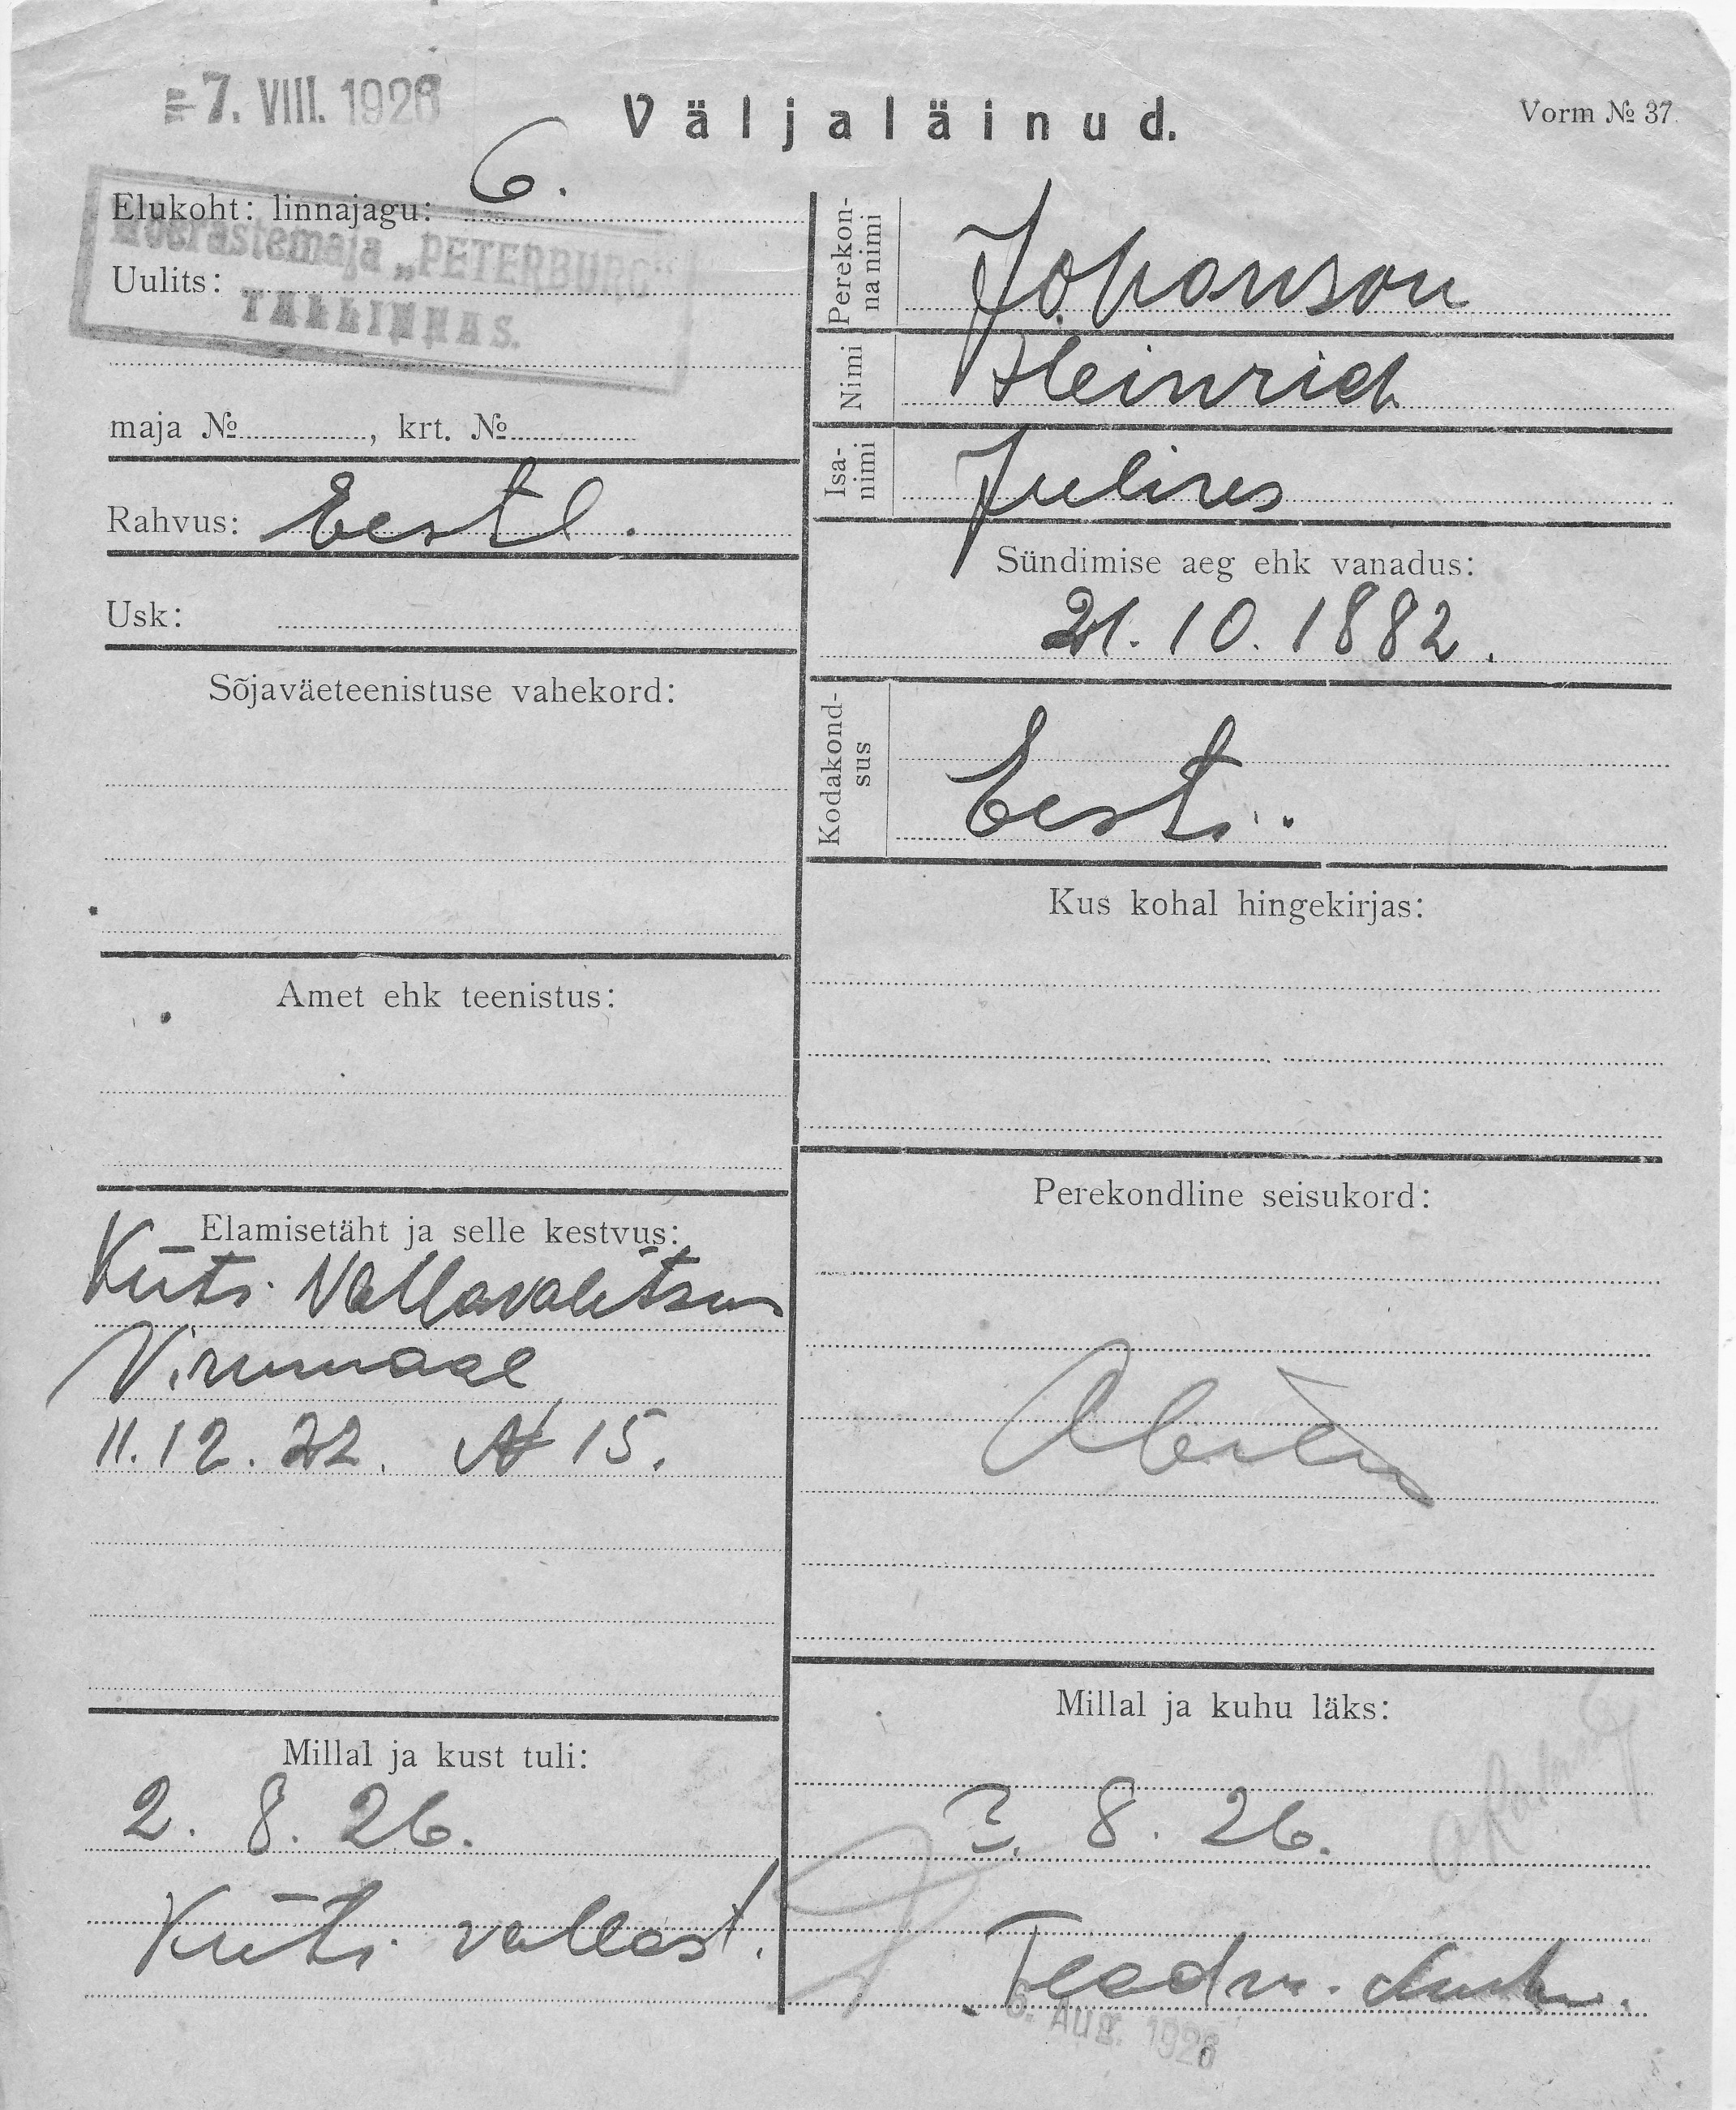 7. VIII. 1926
Väljaläinud.
Vorm № 37.
Elukoht: linnajagu: 6.
Võõrastemaja „PETERBURG“
Uulits:
TALLINNAS.
maja № , krt. №
Rahvus: Eestl.
Usk:
Sõjaväeteenistuse vahekord:
Amet ehk teenistus:
Elamisetäht ja selle kestvus:
Küti Vallavalitsus
Virumaal
11.12.22. № 15.
Millal ja kust tuli:
2. 8. 26.
Küti vallast.
Perekonna nimi
Johanson
Nimi
Heinrich
Isanimi
Julius
Sündimise aeg ehk vanadus:
21.10.1882.
Kodakondsus
Eesti.
Kus kohal hingekirjas:
Perekondline seisukord:
Millal ja kuhu läks:
3. 8. 26.
Teadm.
6. Aug. 1926